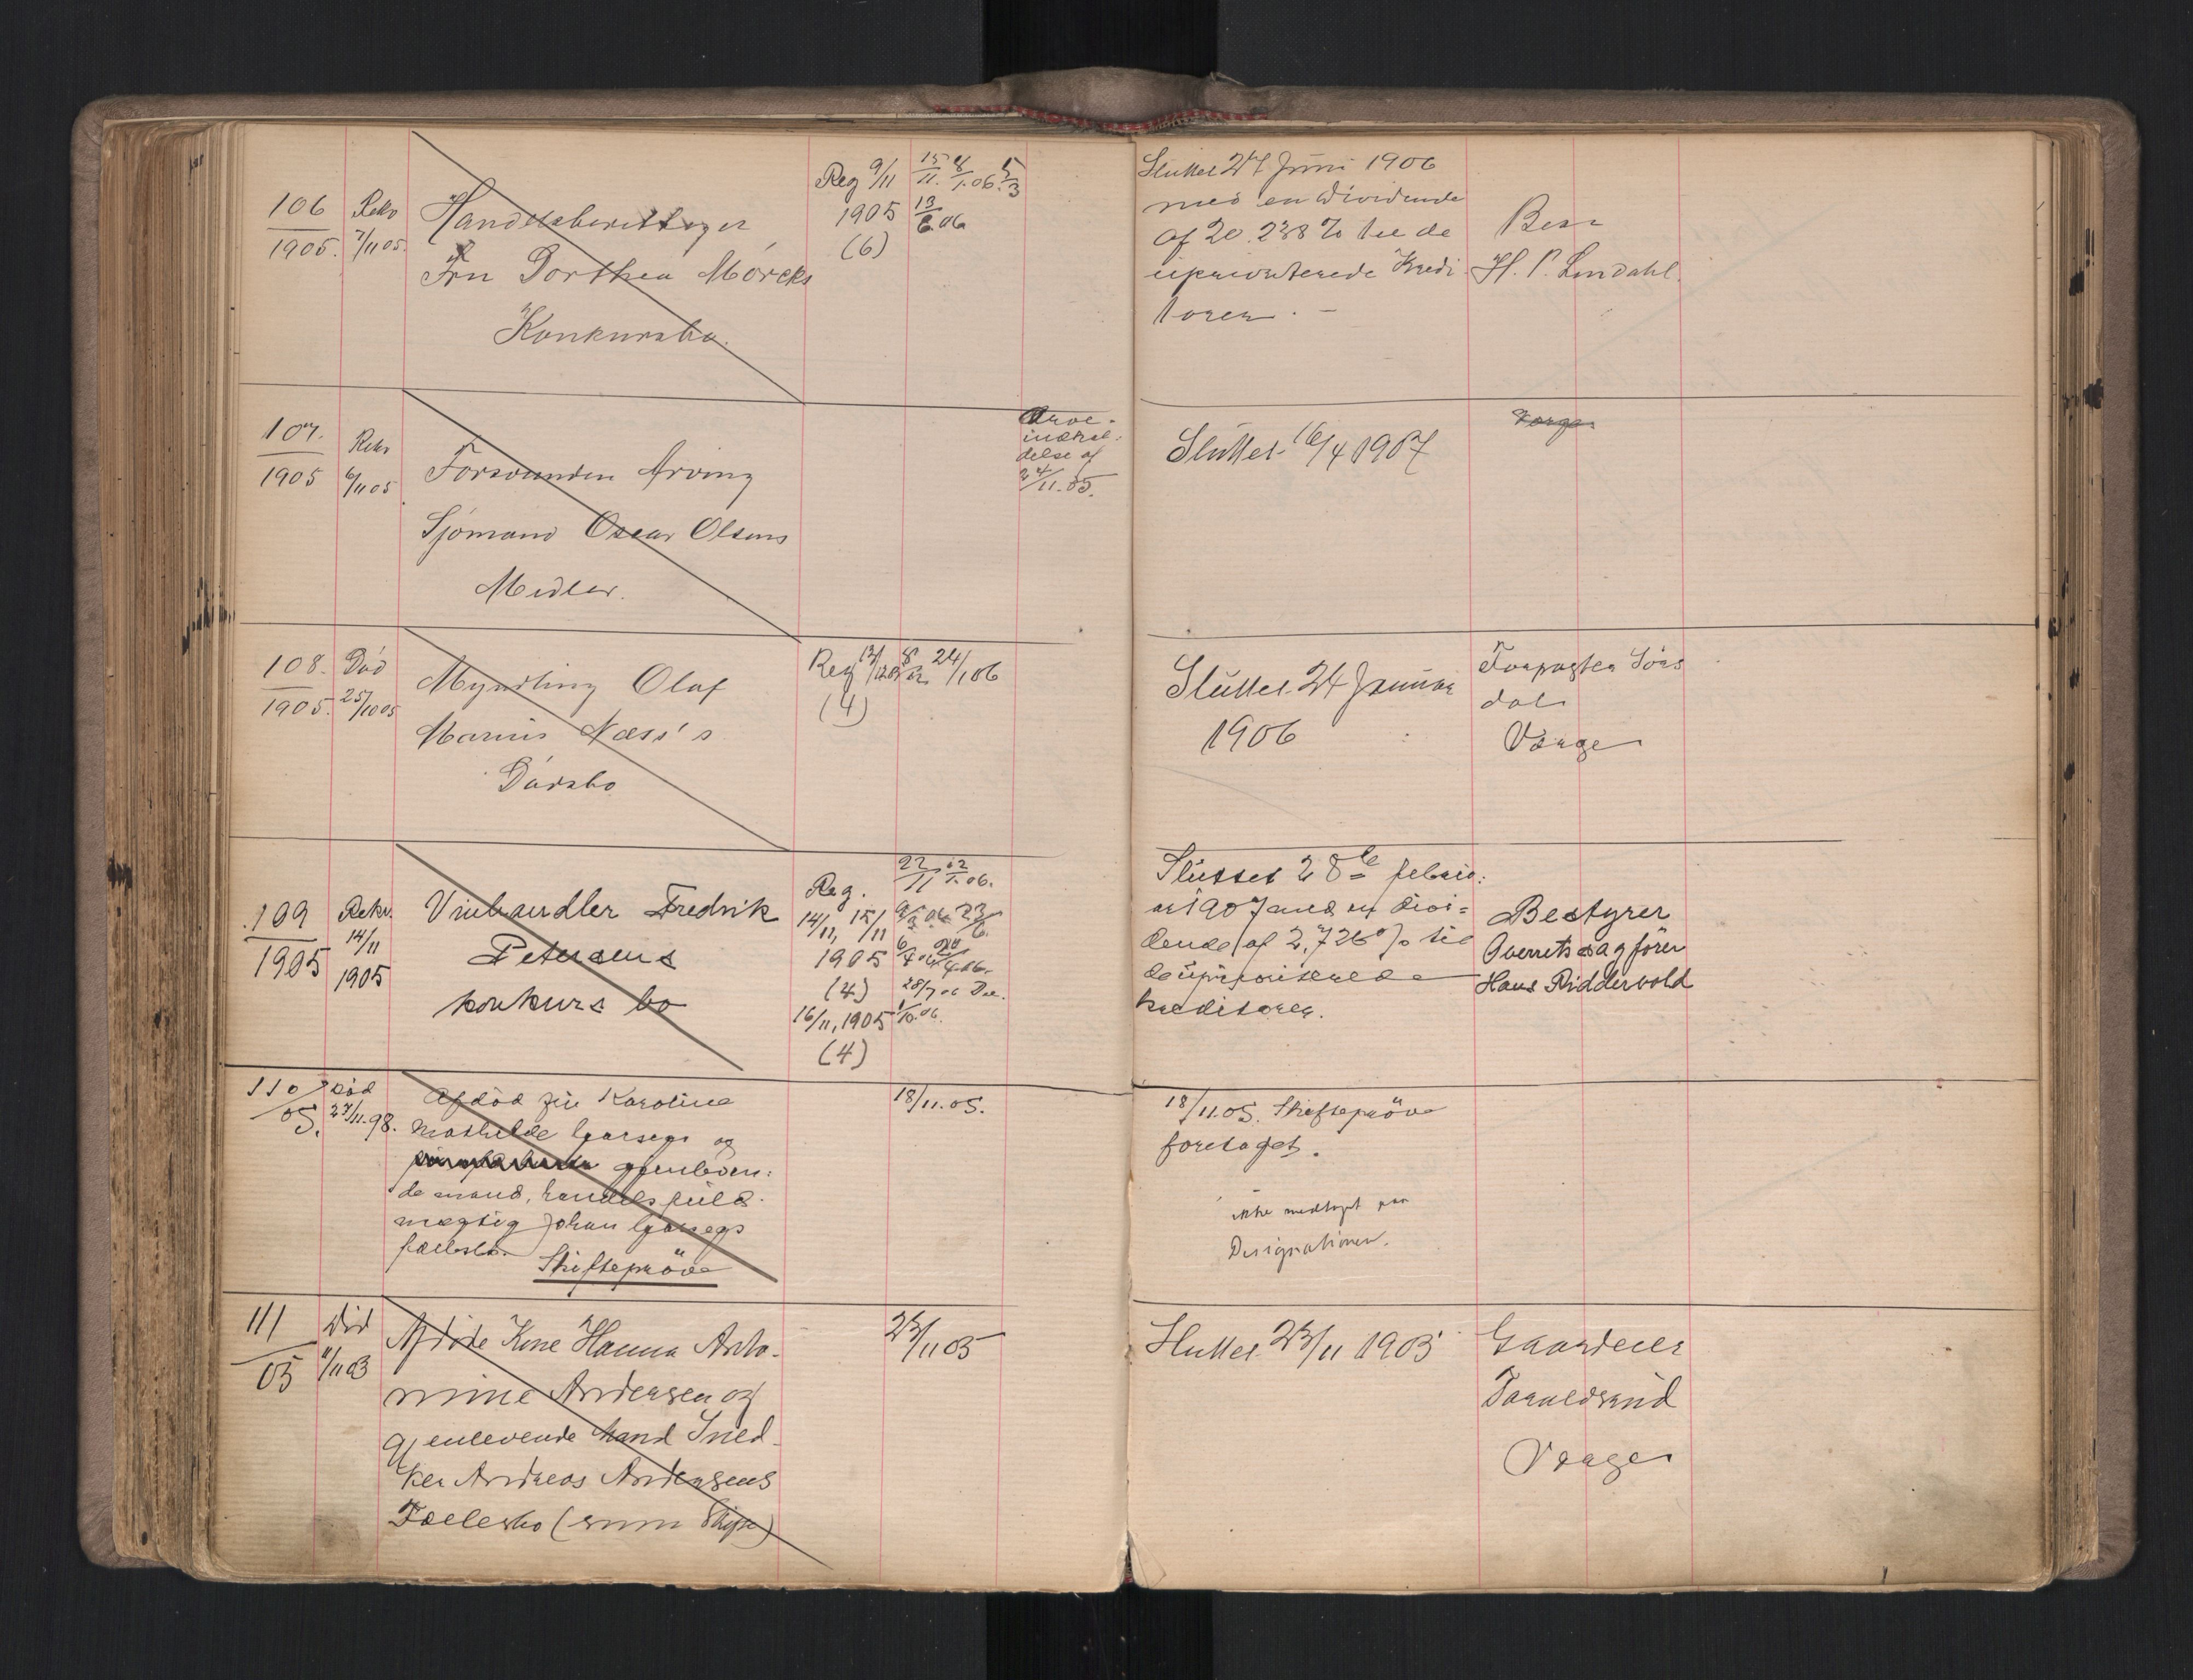 106
1905.
Rekv
7/11 05.
Handelsberettiget
Fru Dorthea Mörcks
Konkursbo.
Reg 9/11
1905
(6)
15/11. 8/1.06. 5/3
13/6.06
Sluttet 27 Juni 1906
med en Dividende
af 20.238 % til de
uprioriterede Kredi
torer. -
Best
H. P. Lindahl.
107.
1905
Rekv
6/11 05
Forsvunden Arving
Sjömand Oscar Olsens
Midler.
Arve-
indkal-
delse af
24/11.05.
Sluttet 16/4 1907
Værge
108.
1905.
Död
25/10 05
Myndling Olaf
Marius Næss's
Dödsbo
Reg
24/1 06
(4)
Sluttet 24 Januar
1906
Forpagter Sörs
dal
Værge
109
1905
Rekv.
14/11
1905
Vinhandler Fredrik
Petersens
konkurs bo
Reg.
14/11, 15/11
1905
(4)
16/11, 1905
(4)
22/11 12/1.06.
28/7 06 Dec.
1/10.06.
Sluttet 28de febru:
ar 1907 med en divi=
dende af 2,726 % til
de uprioriterede
kreditorer.
Bestyrer
Overretssagförer
Hans Riddervold
110/05.
död
27/11.98.
Afdöd fru Karoline
Mathilde
og
gjenleven:
de mand, handelsfuld-
mægtig Johan
fællesbo.
Skiftepröve
18/11.05.
18/11.05. Skiftepröve
foretaget.
ikke medtaget paa
Designationen.
111
05
Död
11/11 03
Afdöde Kone Hanna Anto-
nine Andersen og
gjenlevende Mand Sned-
ker Andreas Andersens
Fællesbo (summ Skifte)
23/11 05
Sluttet 23/11 1905
Gaardeier
Taraldsrud
Værge